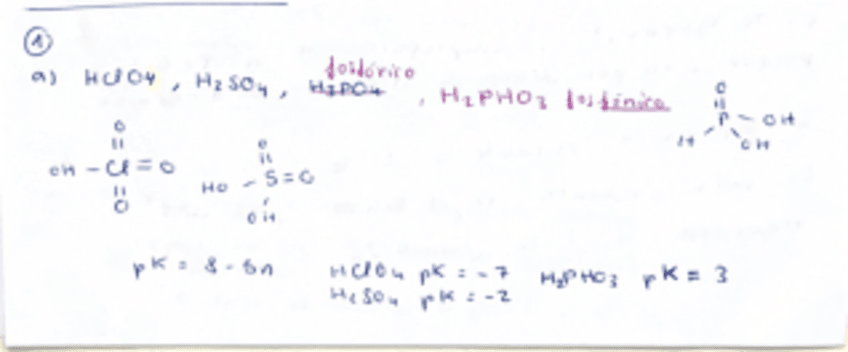 1
a) HClO4, H2SO4, H3PO4, H2PHO3
fosfórico
O
OH - Cl = O
O
O
HO - S = O
OH
O
P - OH
H OH
pK = 8 - 5n HClO4 pK = -7 H2PHO3 pK = 3
H2SO4 pK = -2